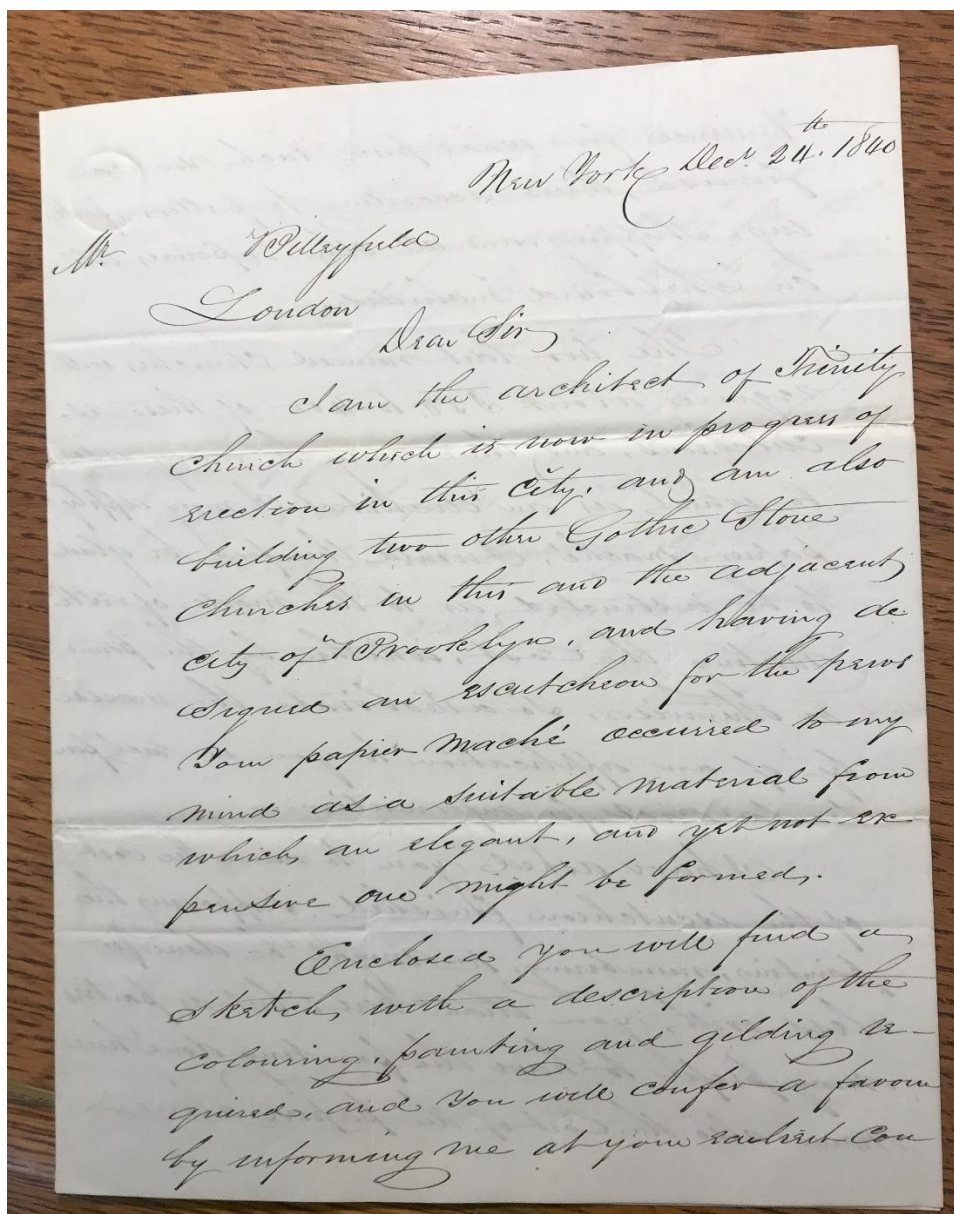 New York Decr. 24th. 1840
Mr. Billeyfield
London
Dear Sir
I am the architect of Trinity
church which is now in progress of
erection in this city, and am also
building two other Gothic Stone
churches in this and the adjacent
city of Brooklyn, and having de
signed an escutcheon for the pews
Your papier maché occurred to my
mind as a suitable material from
which an elegant, and yet not ex
pensive one might be formed.
Enclosed you will find a
sketch, with a description of the
colouring, painting and gilding re-
quired, and you will confer a favour
by informing me at your earliest con